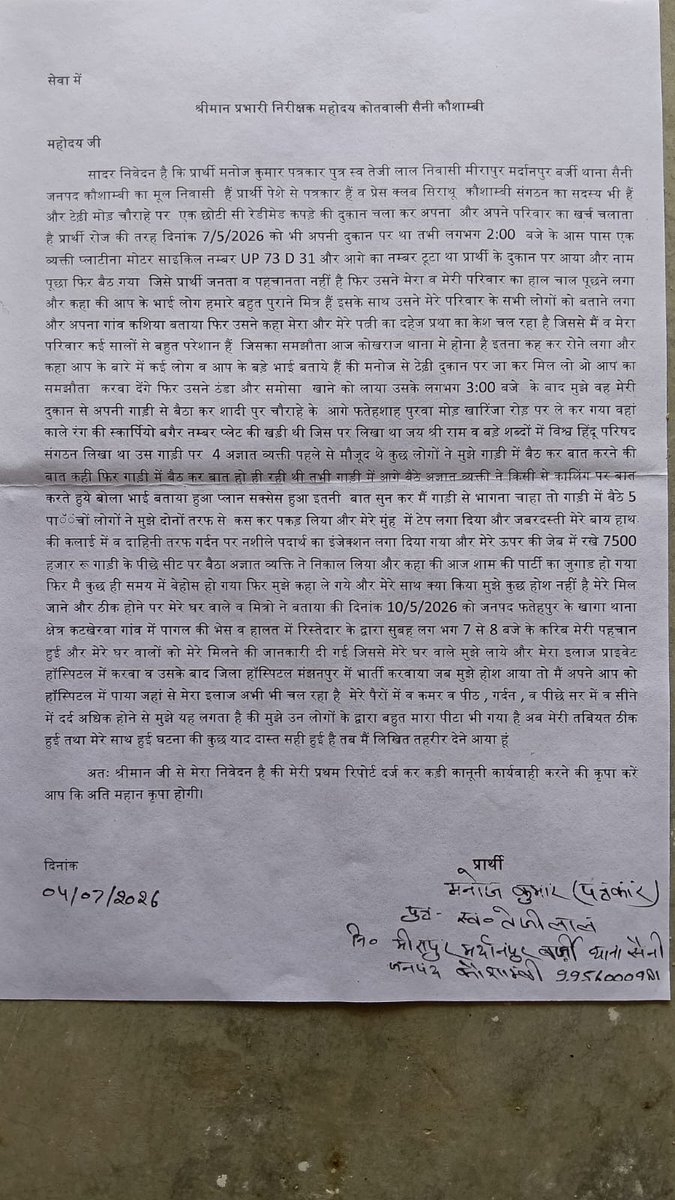 सेवा में
श्रीमान प्रभारी निरीक्षक महोदय कोतवाली सैनी कौशाम्बी
महोदय जी
सादर निवेदन है कि प्रार्थी मनोज कुमार पत्रकार पुत्र स्व तेजी लाल निवासी मीरापुर मर्दानपुर बर्जी थाना सैनी
जनपद कौशाम्बी का मूल निवासी हैं प्रार्थी पेशे से पत्रकार हैं व प्रेस क्लब सिराथू कौशाम्बी संगठन का सदस्य भी हैं
और टेढ़ी मोड़ चौराहे पर एक छोटी सी रेडीमेड कपड़े की दुकान चला कर अपना और अपने परिवार का खर्च चलाता
है प्रार्थी रोज की तरह दिनांक 7/5/2026 को भी अपनी दुकान पर था तभी लगभग 2:00 बजे के आस पास एक
व्यक्ती प्लाटीना मोटर साइकिल नम्बर UP 73 D 31 और आगे का नम्बर टूटा था प्रार्थी के दुकान पर आया और नाम
पूछा फिर बैठ गया जिसे प्रार्थी जनता व पहचानता नहीं है फिर उसने मेरा व मेरी परिवार का हाल चाल पूछने लगा
और कहा की आप के भाई लोग हमारे बहुत पुराने मित्र हैं इसके साथ उसने मेरे परिवार के सभी लोगों को बताने लगा
और अपना गांव कशिया बताया फिर उसने कहा मेरा और मेरे पत्नी का दहेज प्रथा का केश चल रहा है जिससे मैं व मेरा
परिवार कई सालों से बहुत परेशान हैं जिसका समझौता आज कोखराज थाना मे होना है इतना कह कर रोने लगा और
कहा आप के बारे में कई लोग व आप के बड़े भाई बताये हैं की मनोज से टेढ़ी दुकान पर जा कर मिल लो ओ आप का
समझौता करवा देंगे फिर उसने ठंडा और समोसा खाने को लाया उसके लगभग 3:00 बजे के बाद मुझे वह मेरी
दुकान से अपनी गाड़ी से बैठा कर शादी पुर चौराहे के आगे फतेहशाह पुरवा मोड़ खारिंजा रोड़ पर ले कर गया वहां
काले रंग की स्कार्पियो बगैर नम्बर प्लेट की खड़ी थी जिस पर लिखा था जय श्री राम व बड़े शब्दों में विश्व हिंदू परिषद
संगठन लिखा था उस गाड़ी पर 4 अज्ञात व्यक्ती पहले से मौजूद थे कुछ लोगों ने मुझे गाड़ी में बैठ कर बात करने की
बात कही फिर गाड़ी में बैठ कर बात हो ही रही थी तभी गाड़ी में आगे बैठे अज्ञात व्यक्ती ने किसी से कालिंग पर बात
करते हुये बोला भाई बताया हुआ प्लान सक्सेस हुआ इतनी बात सुन कर मैं गाड़ी से भागना चाहा तो गाड़ी में बैठे 5
पाॅंचों लोगों ने मुझे दोनों तरफ से कस कर पकड़ लिया और मेरे मुंह में टेप लगा दिया और जबरदस्ती मेरे बाय हाथ
की कलाई में व दाहिनी तरफ गर्दन पर नशीले पदार्थ का इंजेक्शन लगा दिया गया और मेरे ऊपर की जेब में रखे 7500
हजार रू गाड़ी के पीछे सीट पर बैठा अज्ञात व्यक्ति ने निकाल लिया और कहा की आज शाम की पार्टी का जुगाड़ हो गया
फिर मै कुछ ही समय में बेहोस हो गया फिर मुझे कहा ले गये और मेरे साथ क्या किया मुझे कुछ होश नहीं है मेरे मिल
जाने और ठीक होने पर मेरे घर वाले व मित्रो ने बताया की दिनांक 10/5/2026 को जनपद फतेहपुर के खागा थाना
क्षेत्र कटखेरवा गांव में पागल की भेस व हालत में रिस्तेदार के द्वारा सुबह लग भग 7 से 8 बजे के करिब मेरी पहचान
हुई और मेरे घर वालों को मेरे मिलने की जानकारी दी गई जिससे मेरे घर वाले मुझे लाये और मेरा इलाज प्राइवेट
हॉस्पिटल में करवा व उसके बाद जिला हॉस्पिटल मंझनपुर में भार्ती करवाया जब मुझे होश आया तो मैं अपने आप को
हॉस्पिटल में पाया जहां से मेरा इलाज अभी भी चल रहा है मेरे पैरों में व कमर व पीठ , गर्दन , व पीछे सर में व सीने
में दर्द अधिक होने से मुझे यह लगता है की मुझे उन लोगों के द्वारा बहुत मारा पीटा भी गया है अब मेरी तबियत ठीक
हुई तथा मेरे साथ हुई घटना की कुछ याद दास्त सही हुई है तब मैं लिखित तहरीर देने आया हूं
अतः श्रीमान जी से मेरा निवेदन है की मेरी प्रथम रिपोर्ट दर्ज कर कड़ी कानूनी कार्यवाही करने की कृपा करें
आप कि अति महान कृपा होगी।
दिनांक
04/07/2026
प्रार्थी
मनोज कुमार (पत्रकार)
पुत्र - स्व० तेजीलाल
नि० मीरापुर मर्दानपुर बर्जी थाना सैनी
जनपद कौशाम्बी 9956000981